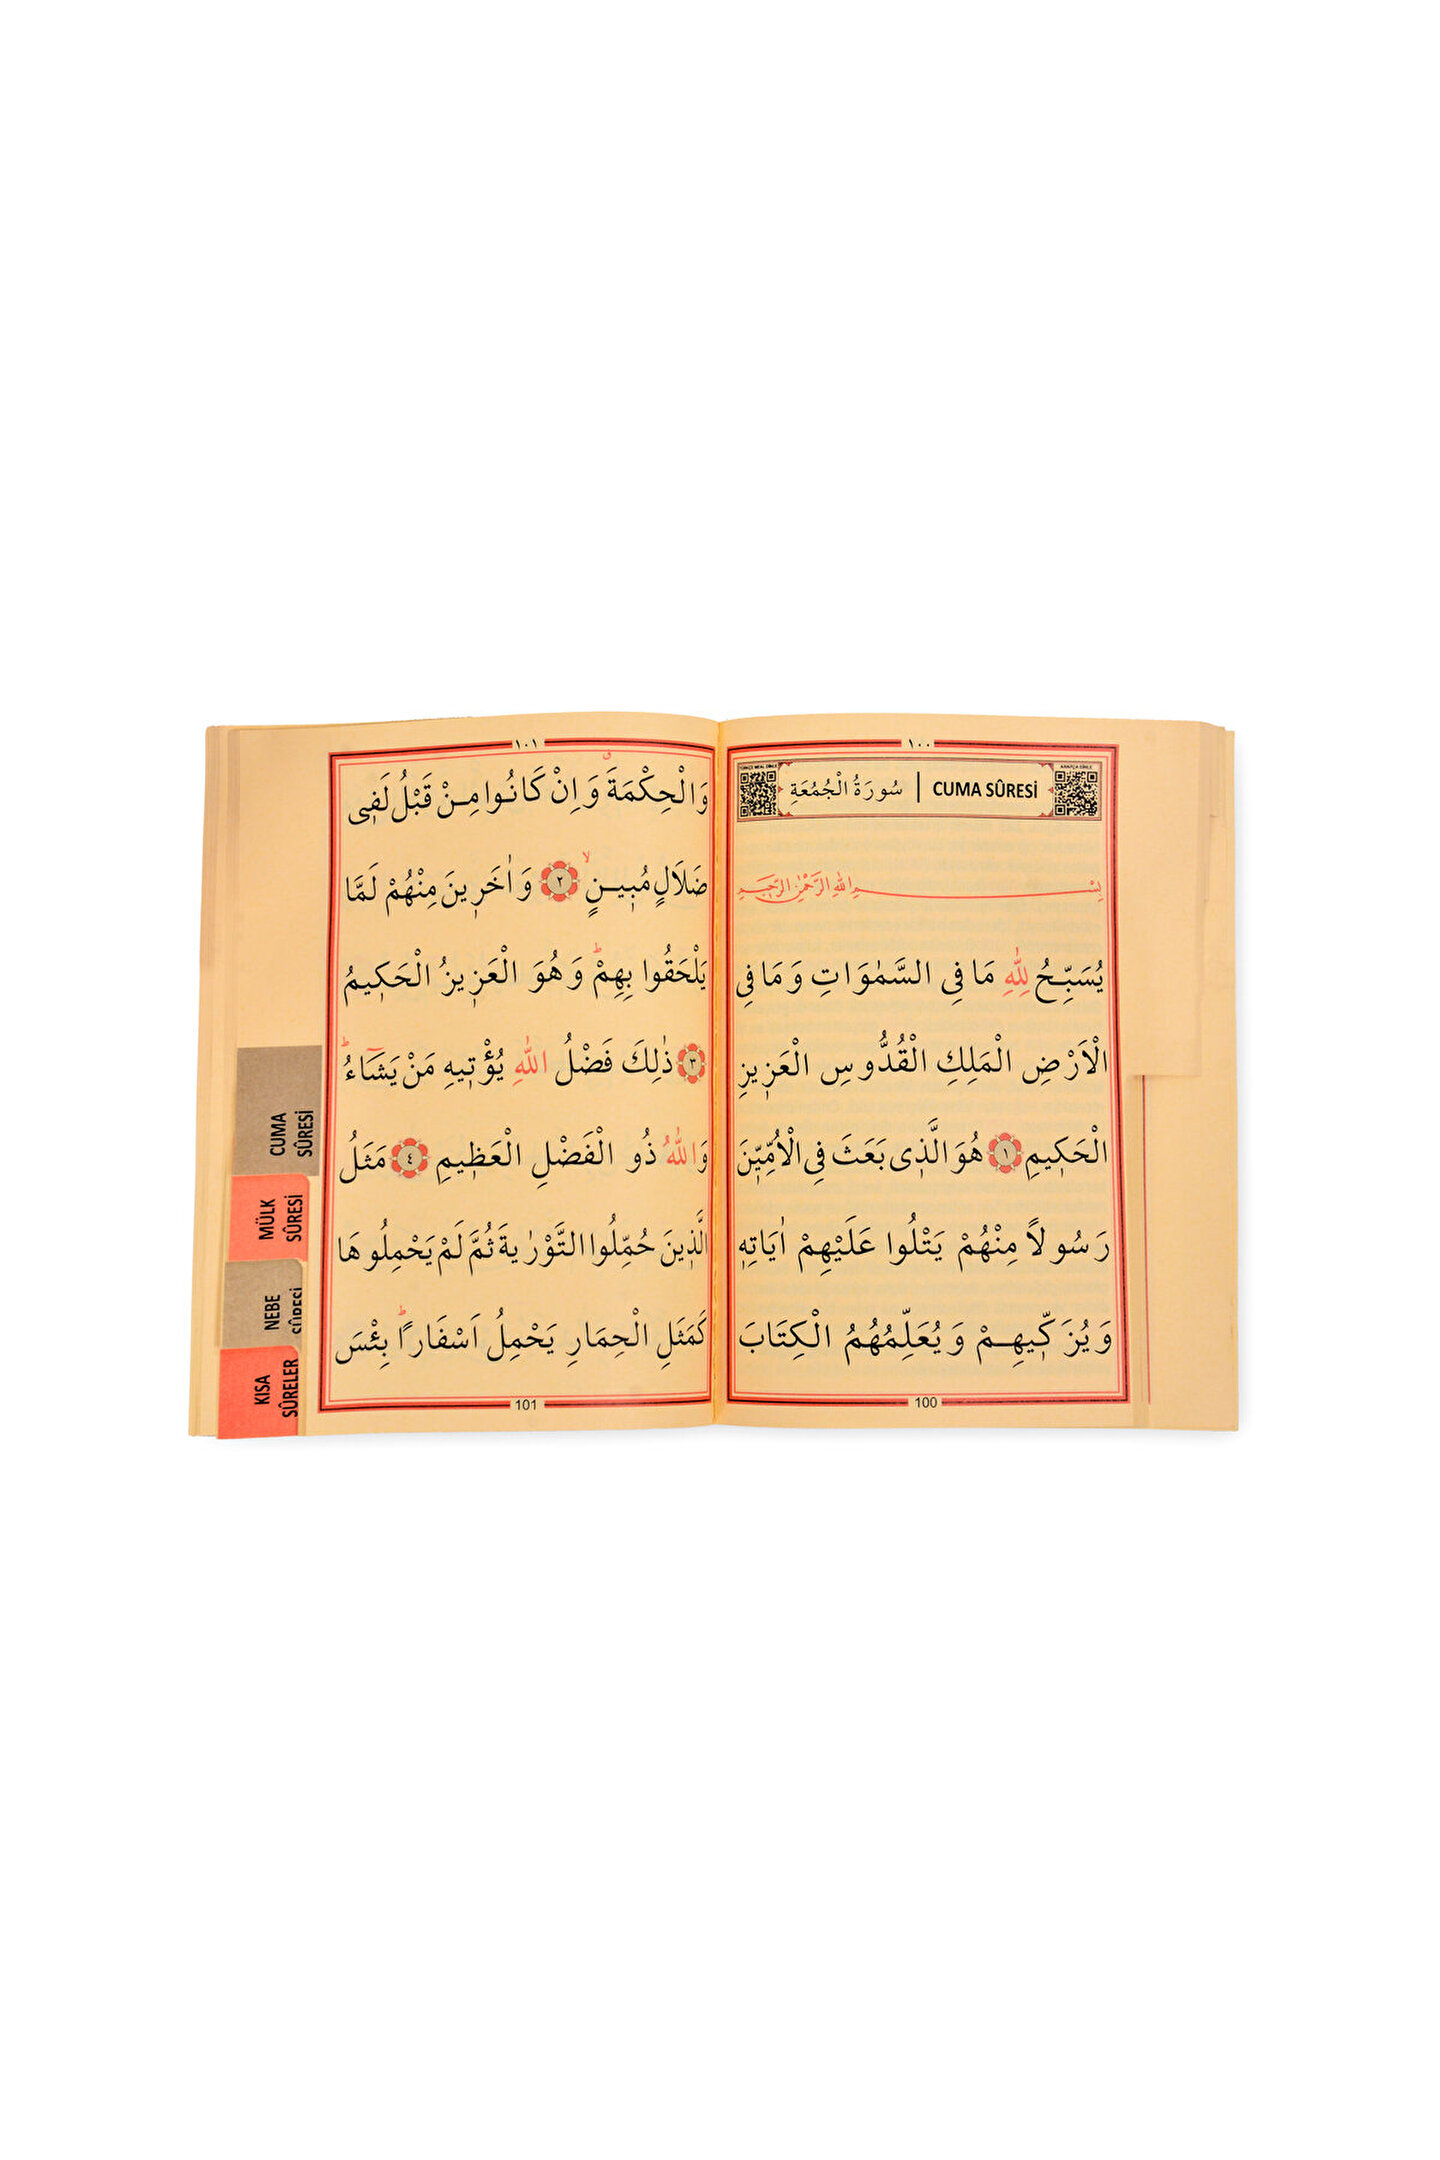 ١٠٠
TÜRKÇE MEAL DİNLE
ARAPÇA DİNLE
سُورَةُ الْجُمُعَةِ | CUMA SÛRESİ
بِسْمِ اللهِ الرَّحْمٰنِ الرَّحٖيمِ
يُسَبِّحُ لِلّٰهِ مَا فِي السَّمٰوَاتِ وَمَا فِي
الْاَرْضِ الْمَلِكِ الْقُدُّوسِ الْعَزٖيزِ
الْحَكٖيمِ ١ هُوَ الَّذٖى بَعَثَ فِي الْاُمِّيّٖنَ
رَسُولاً مِنْهُمْ يَتْلُوا عَلَيْهِمْ اٰيَاتِهٖ
وَيُزَكّٖيهِمْ وَيُعَلِّمُهُمُ الْكِتَابَ
100
١٠١
وَالْحِكْمَةَۗ وَاِنْ كَانُوا مِنْ قَبْلُ لَفٖى
ضَلَالٍ مُبٖينٍۙ ٢ وَاٰخَرٖينَ مِنْهُمْ لَمَّا
يَلْحَقُوا بِهِمْۜ وَهُوَ الْعَزٖيزُ الْحَكٖيمُ
٣ ذٰلِكَ فَضْلُ اللّٰهِ يُؤْتٖيهِ مَنْ يَشَٓاءُۜ
وَاللّٰهُ ذُو الْفَضْلِ الْعَظٖيمِ ٤ مَثَلُ
الَّذٖينَ حُمِّلُوا التَّوْرٰيةَ ثُمَّ لَمْ يَحْمِلُوهَا
كَمَثَلِ الْحِمَارِ يَحْمِلُ اَسْفَاراًۜ بِئْسَ
101
CUMA
SÛRESİ
MÜLK
SÛRESİ
NEBE
SÛRESİ
KISA
SÛRELER